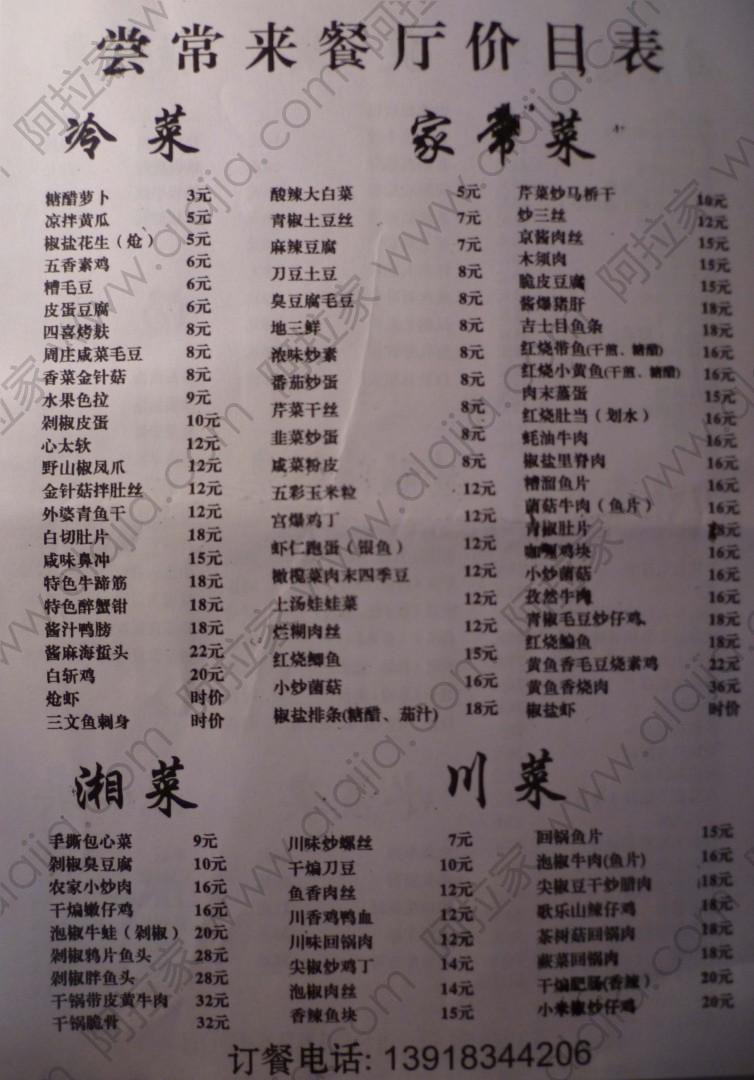 尝常来餐厅价目表
冷菜
糖醋萝卜 3元
凉拌黄瓜 5元
椒盐花生（炝） 5元
五香素鸡 6元
糟毛豆 6元
皮蛋豆腐 6元
四喜烤麸 8元
周庄咸菜毛豆 8元
香菜金针菇 8元
水果色拉 9元
剁椒皮蛋 10元
心太软 12元
野山椒凤爪 12元
金针菇拌肚丝 12元
外婆青鱼干 12元
白切肚片 18元
咸味鼻冲 15元
特色牛蹄筋 18元
特色醉蟹钳 18元
酱汁鸭膀 18元
酱麻海蜇头 22元
白斩鸡 20元
炝虾 时价
三文鱼刺身 时价
家常菜
酸辣大白菜 5元
青椒土豆丝 7元
麻辣豆腐 7元
刀豆土豆 8元
臭豆腐毛豆 8元
地三鲜 8元
浓味炒素 8元
番茄炒蛋 8元
芹菜干丝 8元
韭菜炒蛋 8元
咸菜粉皮 8元
五彩玉米粒 12元
宫爆鸡丁 12元
虾仁跑蛋（银鱼） 12元
橄榄菜肉末四季豆 12元
上汤娃娃菜 12元
烂糊肉丝 12元
红烧鲫鱼 15元
小炒菌菇 16元
椒盐排条(糖醋、茄汁) 18元
芹菜炒马桥干 10元
炒三丝 12元
京酱肉丝 15元
木须肉 15元
脆皮豆腐 15元
酱爆猪肝 18元
吉士目鱼条 18元
红烧带鱼(干煎、糖醋) 16元
红烧小黄鱼(干煎、糖醋) 16元
肉末蒸蛋 15元
红烧肚当（划水） 16元
蚝油牛肉 16元
椒盐里脊肉 16元
糟溜鱼片 16元
菌菇牛肉（鱼片） 16元
青椒肚片 8元
咖喱鸡块 16元
小炒菌菇 16元
孜然牛肉 16元
青椒毛豆炒仔鸡 18元
红烧鳊鱼 18元
黄鱼香毛豆烧素鸡 22元
黄鱼香烧肉 36元
椒盐虾 时价
湘菜
手撕包心菜 9元
剁椒臭豆腐 10元
农家小炒肉 16元
干煸嫩仔鸡 16元
泡椒牛蛙（剁椒） 20元
剁椒鸦片鱼头 28元
剁椒胖鱼头 28元
干锅带皮黄牛肉 32元
干锅脆骨 32元
川菜
川味炒螺丝 7元
干煸刀豆 10元
鱼香肉丝 12元
川香鸡鸭血 12元
川味回锅肉 12元
尖椒炒鸡丁 14元
泡椒肉丝 14元
香辣鱼块 15元
回锅鱼片 15元
泡椒牛肉(鱼片) 16元
尖椒豆干炒腊肉 18元
歌乐山辣仔鸡 18元
茶树菇回锅肉 18元
蕨菜回锅肉 18元
干煸肥肠(香辣) 20元
小米椒炒仔鸡 20元
订餐电话: 13918344206
阿拉家 www.alajia.com